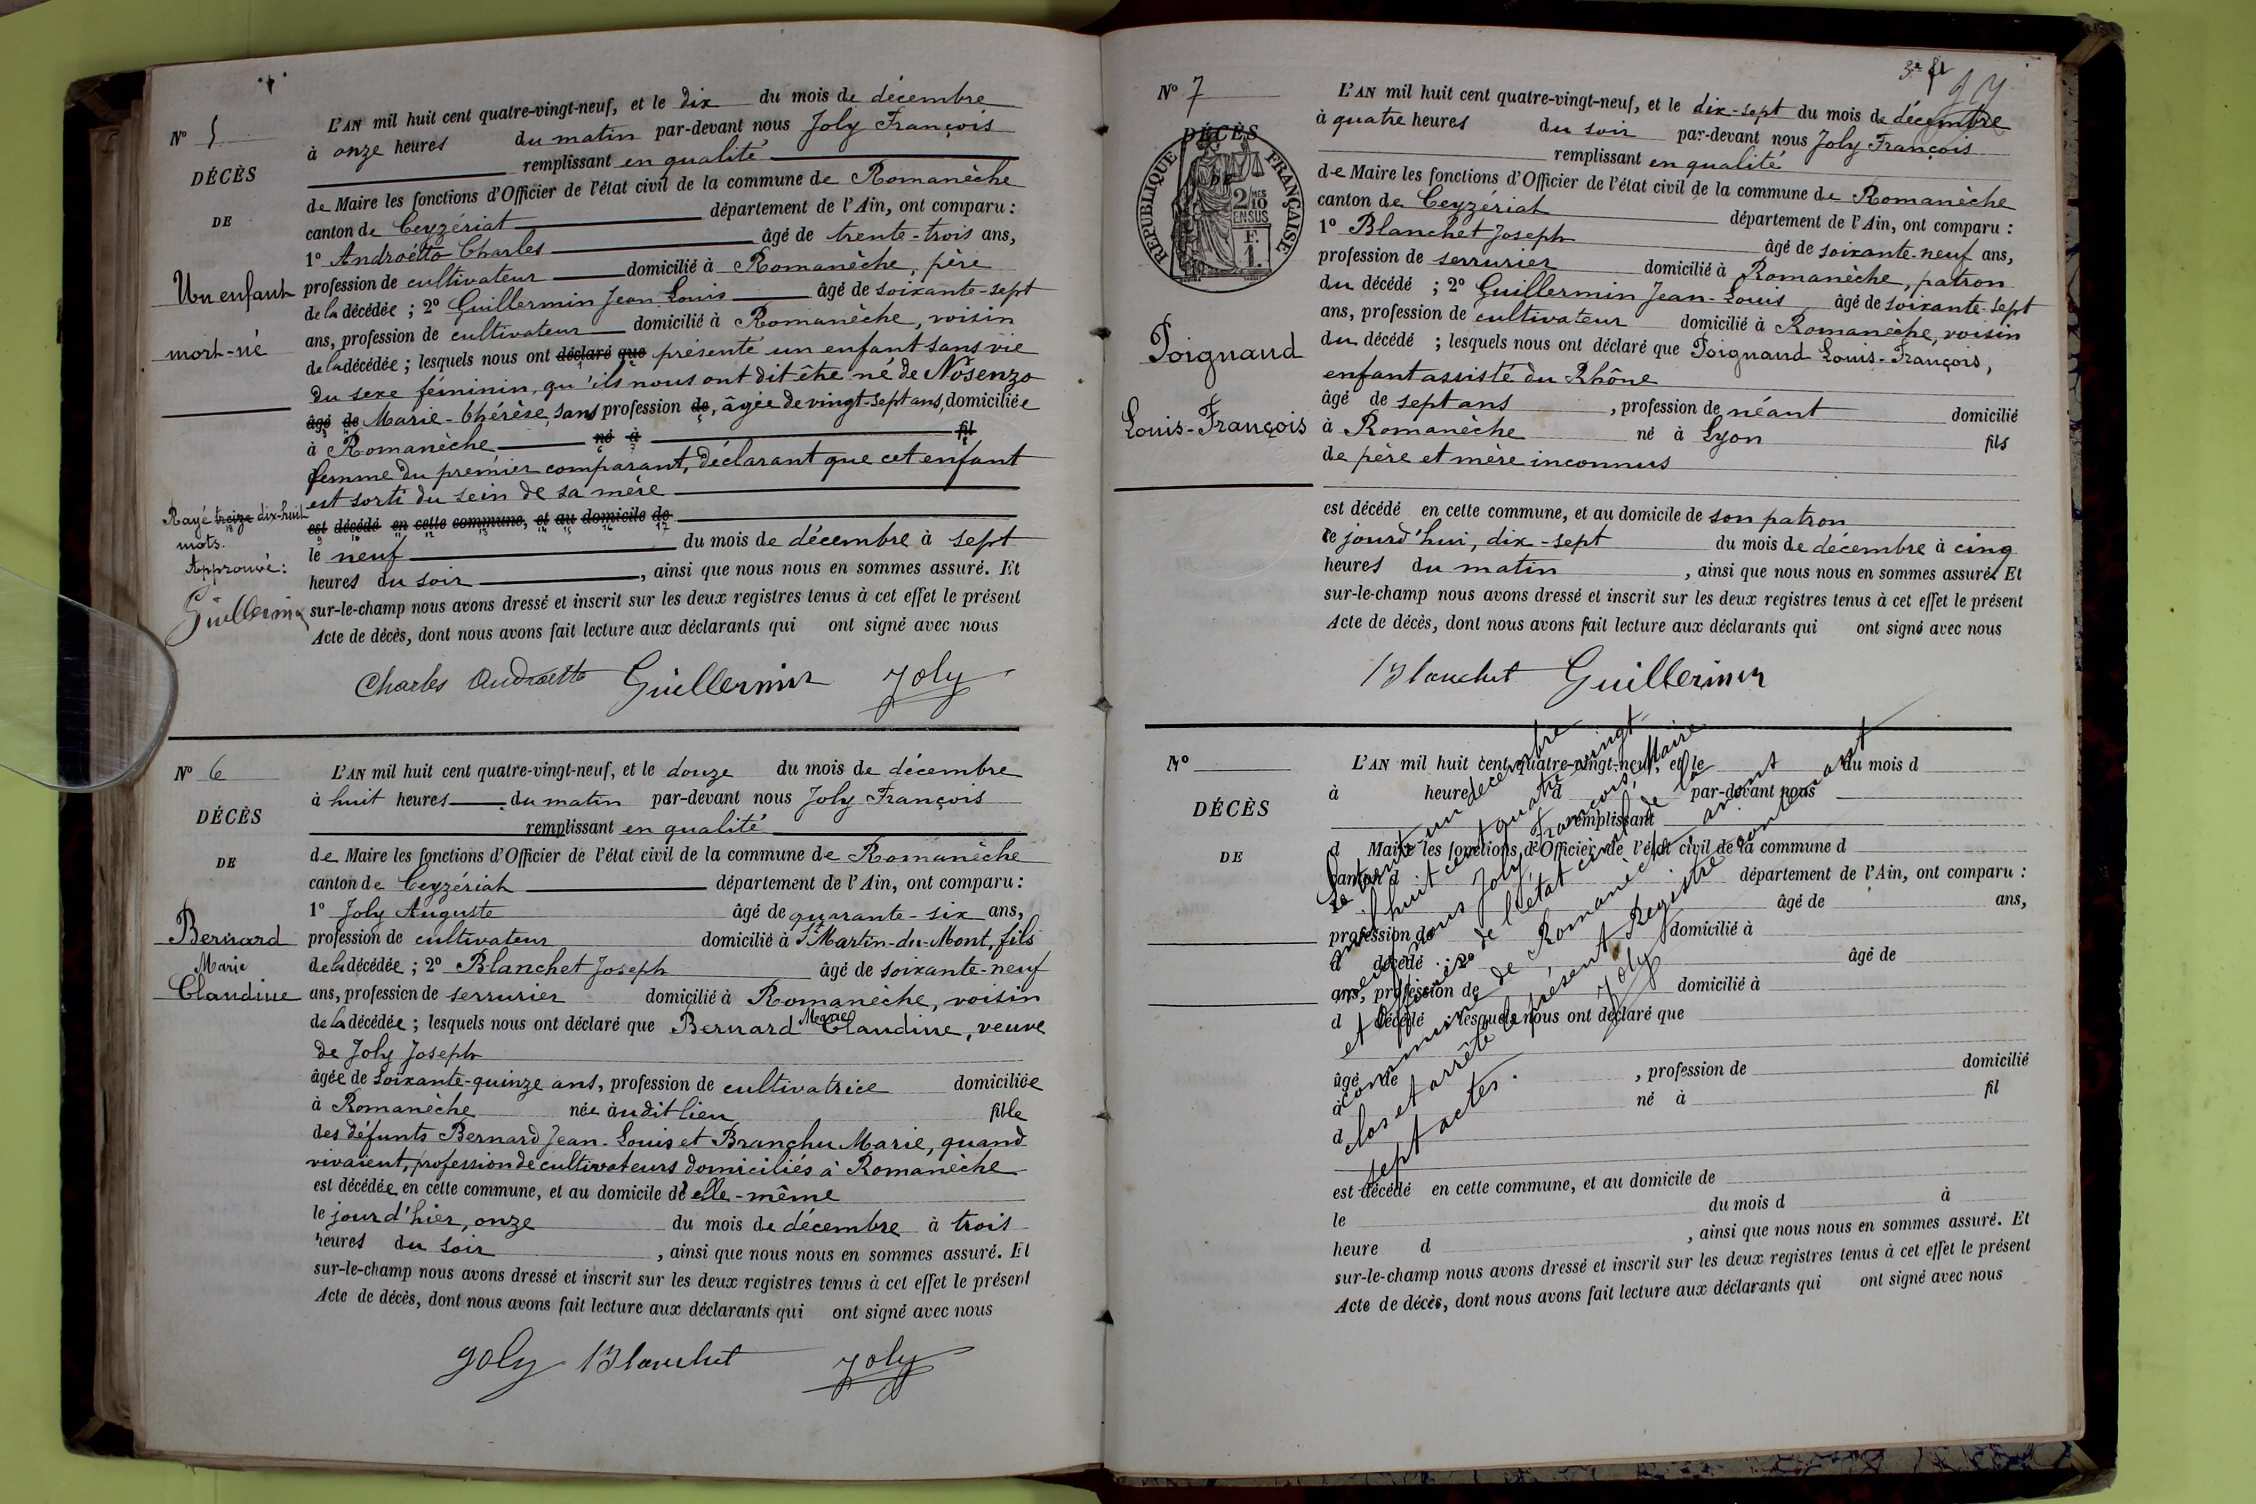 N° 5
DÉCÈS
DE
Un enfant
mort-né
Rayé treize dix-huit
mots.
Approuvé :
Guillermin
L'AN mil huit cent quatre-vingt-neuf, et le dix du mois de décembre
à onze heures du matin par-devant nous Joly François
remplissant en qualité
de Maire les fonctions d'Officier de l'état civil de la commune de Romanèche
canton de Ceyzériat département de l'Ain, ont comparu :
1° Androëtto Charles âgé de trente-trois ans,
profession de cultivateur domicilié à Romanèche, père
de la décédée ; 2° Guillermin Jean Louis âgé de soixante-sept
ans, profession de cultivateur domicilié à Romanèche, voisin
de la décédée ; lesquels nous ont déclaré que présenté un enfant sans vie
du sexe féminin, qu'ils nous ont dit être né de Nosenzo
âgé de Marie-Thérèse, sans profession de, âgée de vingt-sept ans, domiciliée
à Romanèche né à fil
femme du premier comparant, déclarant que cet enfant
est sorti du sein de sa mère
est décédé en cette commune, et au domicile de
le neuf du mois de décembre à sept
heures du soir, ainsi que nous nous en sommes assuré. Et
sur-le-champ nous avons dressé et inscrit sur les deux registres tenus à cet effet le présent
Acte de décès, dont nous avons fait lecture aux déclarants qui ont signé avec nous
Charles Androetto Guillermin Joly
N° 6
DÉCÈS
DE
Bernard
Marie
Claudine
L'AN mil huit cent quatre-vingt-neuf, et le douze du mois de décembre
à huit heures du matin par-devant nous Joly François
remplissant en qualité
de Maire les fonctions d'Officier de l'état civil de la commune de Romanèche
canton de Ceyzériat département de l'Ain, ont comparu :
1° Joly Auguste âgé de quarante-six ans,
profession de cultivateur domicilié à St Martin-du-Mont, fils
de la décédée ; 2° Blanchet Joseph âgé de soixante-neuf
ans, profession de serrurier domicilié à Romanèche, voisin
de la décédée ; lesquels nous ont déclaré que Bernard Marie Claudine, veuve
de Joly Joseph
âgée de soixante-quinze ans, profession de cultivatrice domiciliée
à Romanèche née àudit lieu fille
des défunts Bernard Jean-Louis et Branchu Marie, quand
vivaient, profession de cultivateurs domiciliés à Romanèche
est décédée en cette commune, et au domicile d'elle-même
le jour d'hier, onze du mois de décembre à trois
heures du soir, ainsi que nous nous en sommes assuré. Et
sur-le-champ nous avons dressé et inscrit sur les deux registres tenus à cet effet le présent
Acte de décès, dont nous avons fait lecture aux déclarants qui ont signé avec nous
Joly Blanchet Joly
N° 7
DÉCÈS
RÉPUBLIQUE FRANÇAISE
2/10 MES
EN SUS
F.
1.
Poignaud
Louis-François
L'AN mil huit cent quatre-vingt-neuf, et le dix-sept du mois de décembre
à quatre heures du soir par-devant nous Joly François
remplissant en qualité
de Maire les fonctions d'Officier de l'état civil de la commune de Romanèche
canton de Ceyzériat département de l'Ain, ont comparu :
1° Blanchet Joseph âgé de soixante-neuf ans,
profession de serrurier domicilié à Romanèche, patron
du décédé ; 2° Guillermin Jean-Louis âgé de soixante-sept
ans, profession de cultivateur domicilié à Romanèche, voisin
du décédé ; lesquels nous ont déclaré que Poignaud Louis-François,
enfant assisté du Rhône
âgé de sept ans, profession de néant domicilié
à Romanèche né à Lyon fils
de père et mère inconnus
est décédé en cette commune, et au domicile de son patron
ce jourd'hui, dix-sept du mois de décembre à cinq
heures du matin, ainsi que nous nous en sommes assuré. Et
sur-le-champ nous avons dressé et inscrit sur les deux registres tenus à cet effet le présent
Acte de décès, dont nous avons fait lecture aux déclarants qui ont signé avec nous
Blanchet Guillermin
N°
DÉCÈS
DE
L'AN mil huit cent quatre-vingt-neuf, et le du mois d
à heure d par-devant nous
remplissant
d Maire les fonctions d'Officier de l'état civil de la commune d
canton d département de l'Ain, ont comparu :
1° âgé de ans,
profession de domicilié à
d décédé ; 2° âgé de
ans, profession de domicilié à
d décédé lesquels nous ont déclaré que
âgé de, profession de domicilié
à né à fil
d
est décédé en cette commune, et au domicile de
le du mois d à
heure d, ainsi que nous nous en sommes assuré. Et
sur-le-champ nous avons dressé et inscrit sur les deux registres tenus à cet effet le présent
Acte de décès, dont nous avons fait lecture aux déclarants qui ont signé avec nous
Le trente un décembre
mil huit cent quatre vingt
neuf nous Joly François, Maire
et officier de l'état civil de la
commune de Romanèche avons
clos et arrêté le présent Registre contenant
sept actes.
Joly